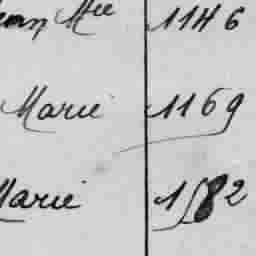 Mce 1146
Marie 1169
Marie 1582